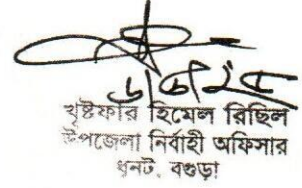 খৃষ্টফার হিমেল রিছিল
উপজেলা নির্বাহী অফিসার
ধুনট, বগুড়া